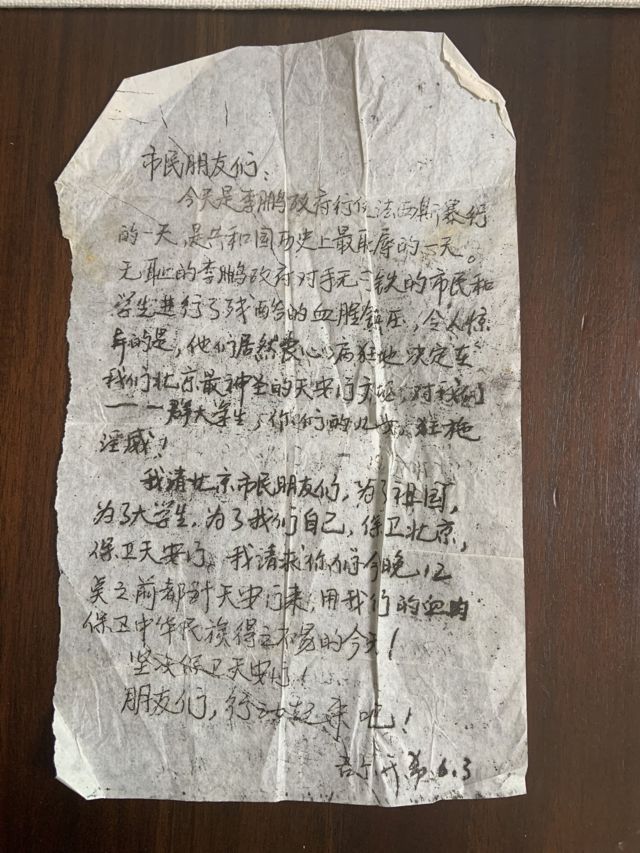 市民朋友们:
今天是李鹏政府行使法西斯暴行
的一天,是共和国历史上最耻辱的一天。
无耻的李鹏政府对手无寸铁的市民和
学生进行了残酷的血腥镇压,令人惊
奇的是,他们居然丧心病狂地决定在
我们北京最神圣的天安门广场,对我们
——群大学生,你们的儿女,狂施
淫威!
我请北京市民朋友们,为了祖国,
为了大学生,为了我们自己,保卫北京,
保卫天安门。我请求你们今晚12
之前都到天安门来,用我们的血肉
保卫中华民族得之不易的今天!
坚决保卫天安门!
朋友们,行动起来吧!
6.3